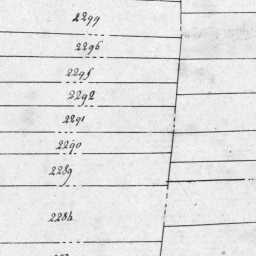 2299
2296
2295
2292
2291
2290
2289
2286